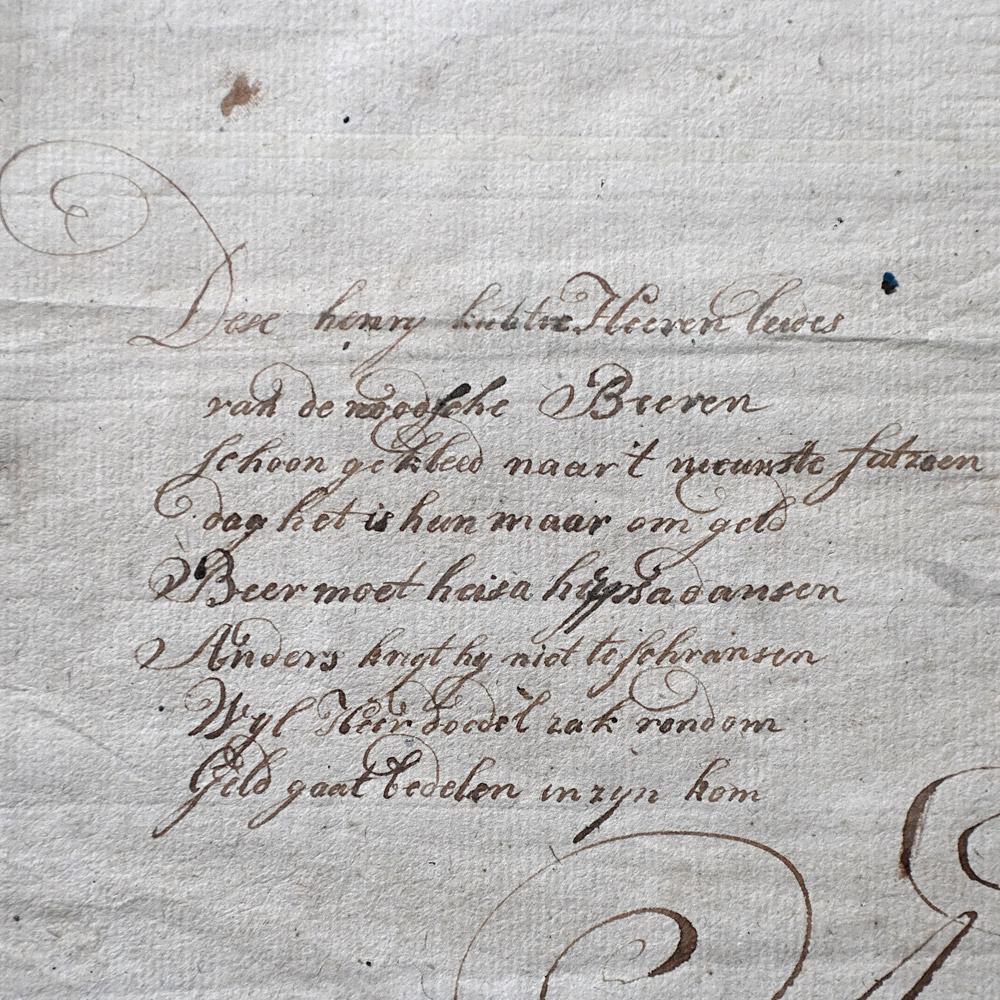 Dese henry Heeren leides
van de noodsche Beeren
schoon gekleed naar t nieunste fatzoen
dog het is hun maar om geld
Beer moet heisa hipsa dansen
Anders krygt hy niet te schransen
Wyl Heer doedel zak rondom
Geld gaat bedelen in zyn kom